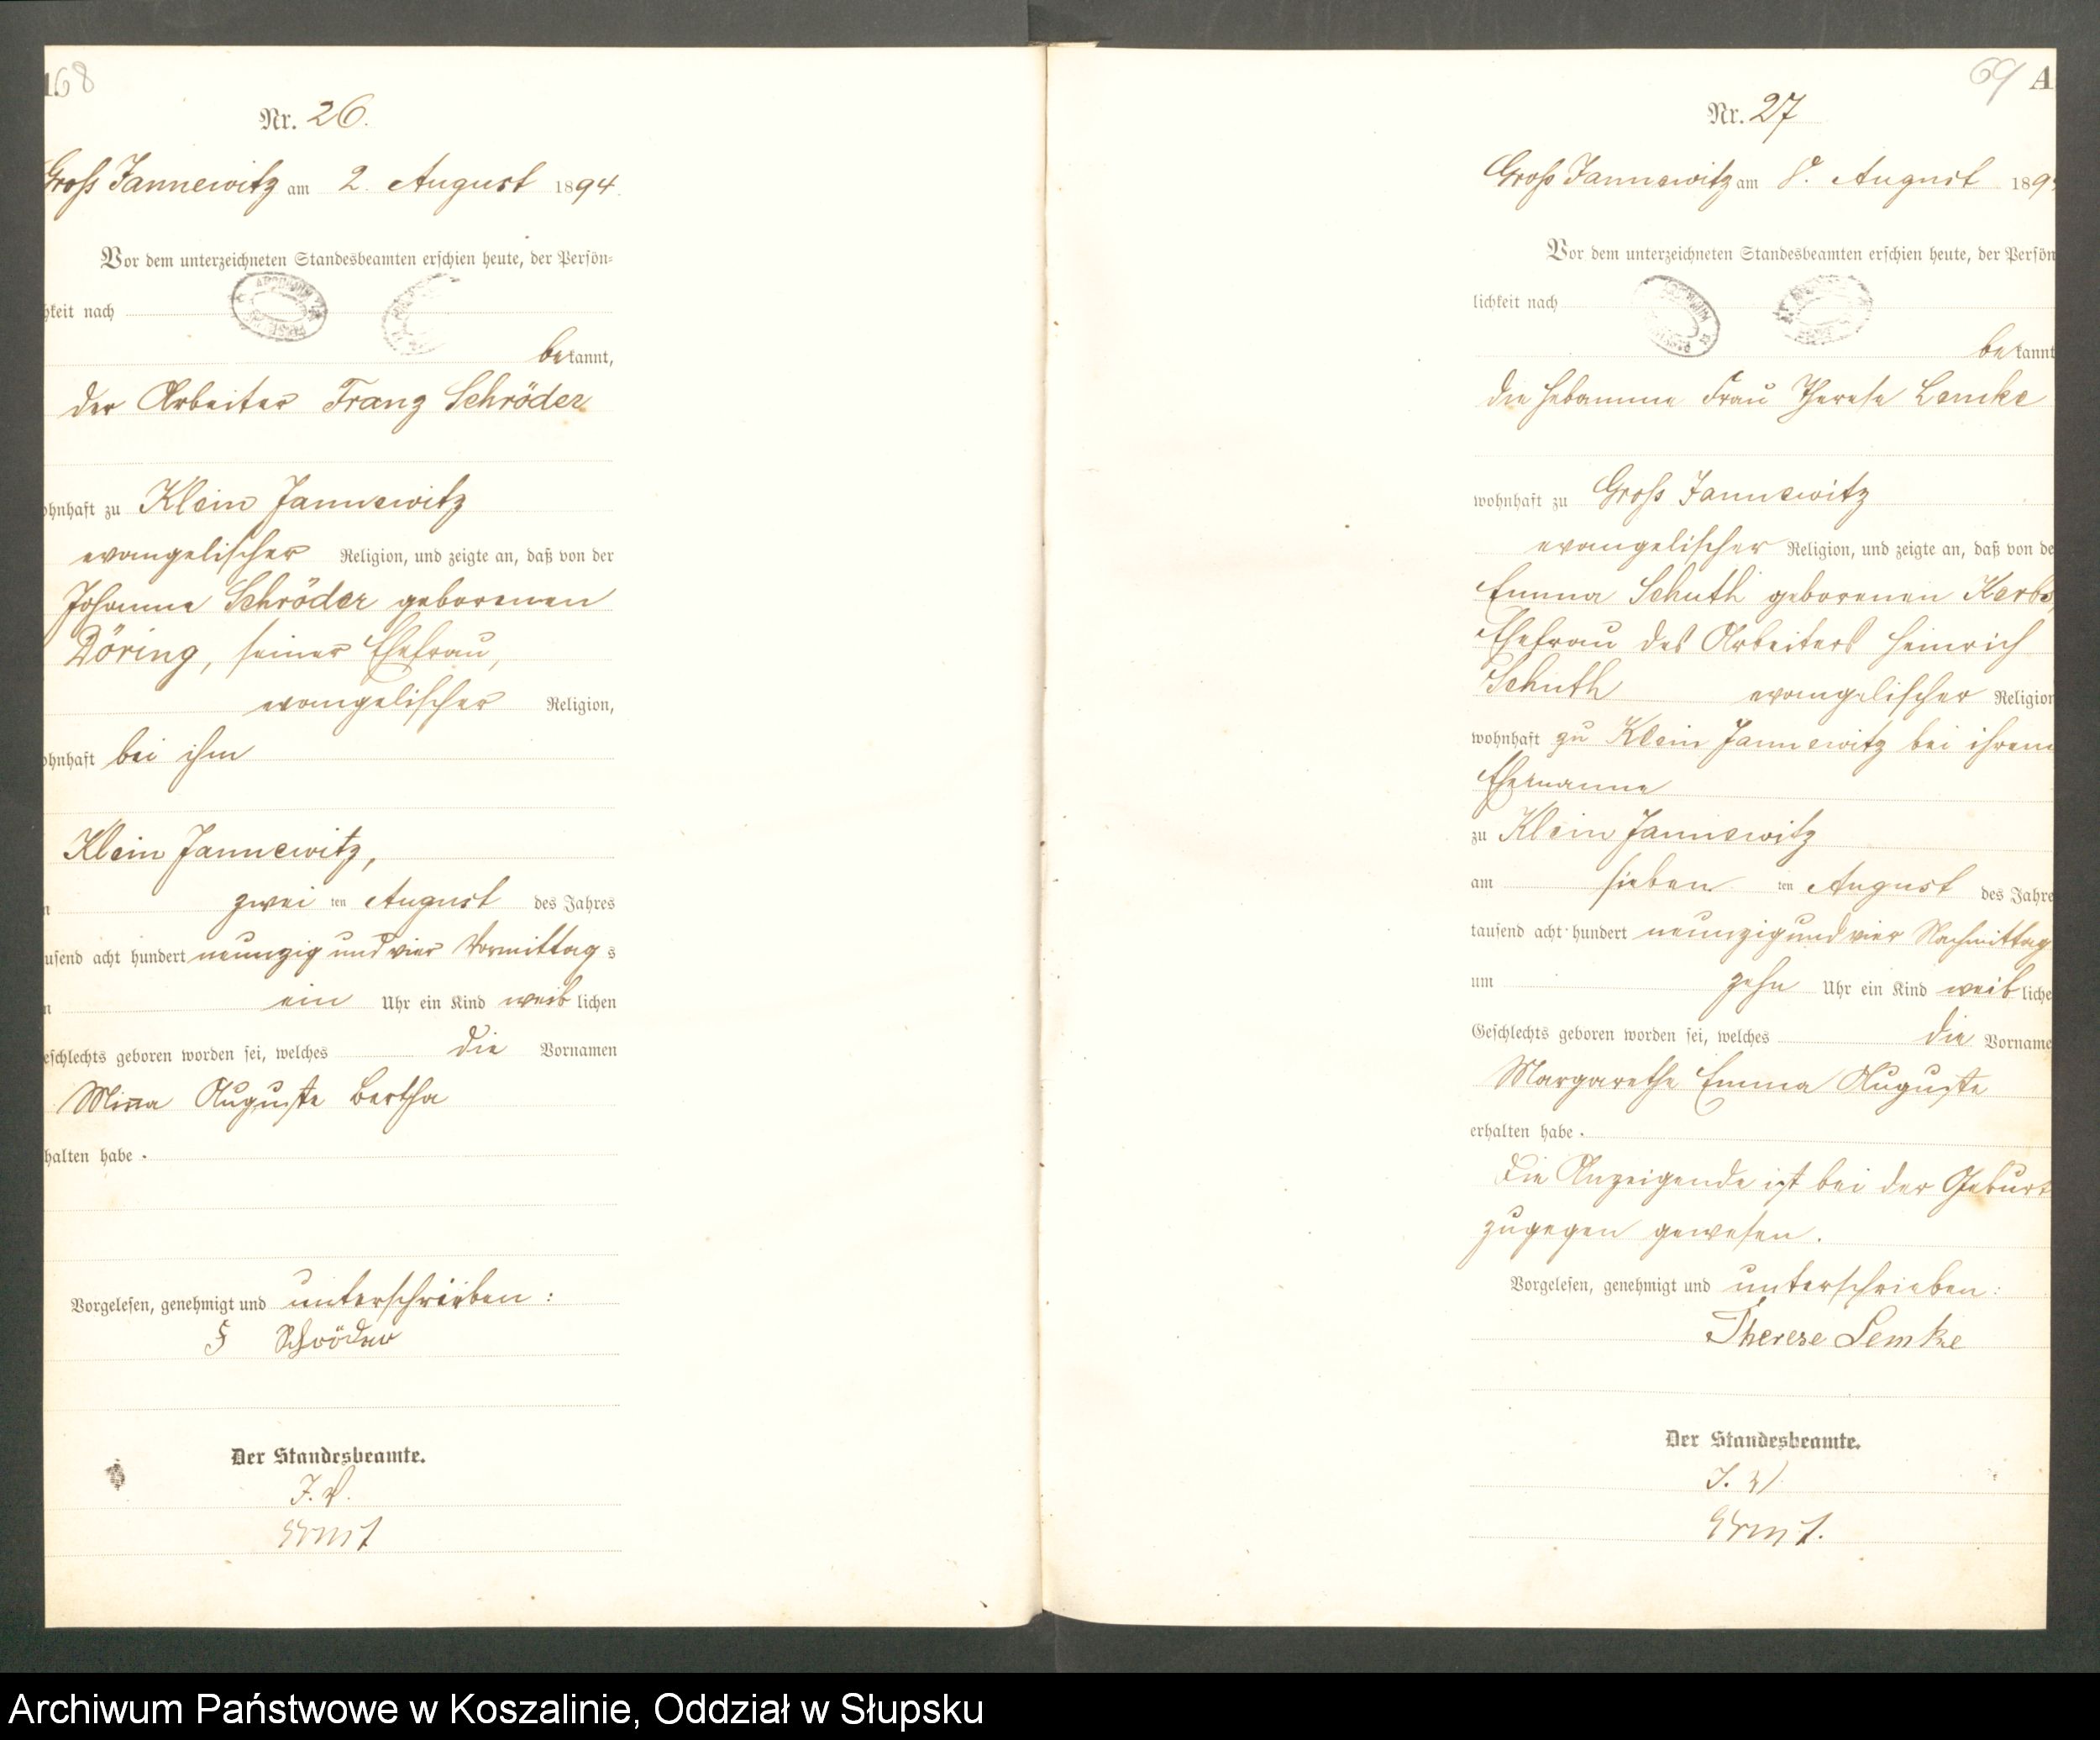 68
Nr. 26.
Gross Jannewitz am 2. August 1894.
Vor dem unterzeichneten Standesbeamten erschien heute, der Persön-
hkeit nach
bekannt,
der Arbeiter Franz Schröder
ohnhaft zu Klein Jannewitz
evangelischer Religion, und zeigte an, daß von der
Johanne Schröder geborenen
Döring, seiner Ehefrau,
evangelischer Religion,
ohnhaft bei ihm
Klein Jannewitz,
zwei ten August des Jahres
usend acht hundert neunzig und vier Vormittags
ein Uhr ein Kind weiblichen
eschlechts geboren worden sei, welches die Vornamen
Minna Auguste Bertha
halten habe.
Vorgelesen, genehmigt und unterschrieben:
F Schröder
Der Standesbeamte.
J. V.
69 A
Nr. 27
Gross Jannewitz am 8. August 189
Vor dem unterzeichneten Standesbeamten erschien heute, der Persön
lichkeit nach
bekannt
die Hebamme Frau Therese Lemke
wohnhaft zu Gross Jannewitz
evangelischer Religion, und zeigte an, daß von de
Emma Schuth geborenen Kerbs,
Ehefrau des Arbeiters Heinrich
Schuth evangelischer Religion
wohnhaft zu Klein Jannewitz bei ihrem
Ehemanne
zu Klein Jannewitz
am sieben ten August des Jahre
tausend acht hundert neunzig und vier Nachmittag
um zehn Uhr ein Kind weibliche
Geschlechts geboren worden sei, welches die Vorname
Margarethe Emma Auguste
erhalten habe.
Die Anzeigende ist bei der Geburt
zugegen gewesen.
Vorgelesen, genehmigt und unterschrieben:
Therese Lemke
Der Standesbeamte.
J. V.
Archiwum Państwowe w Koszalinie, Oddział w Słupsku